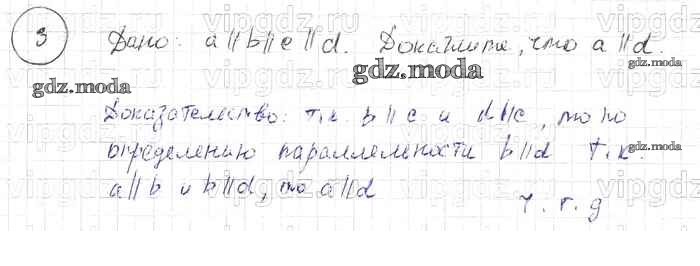 3 Дано: a || b || c || d. Докажите, что a || d.
gdz.moda
gdz.moda
gdz.moda
Доказательство: т.к. b || c и d || c, то по
определению параллельности b || d т.к.
gdz.moda
a || b и b || d, то a || d
ч.т.д
gdz.moda